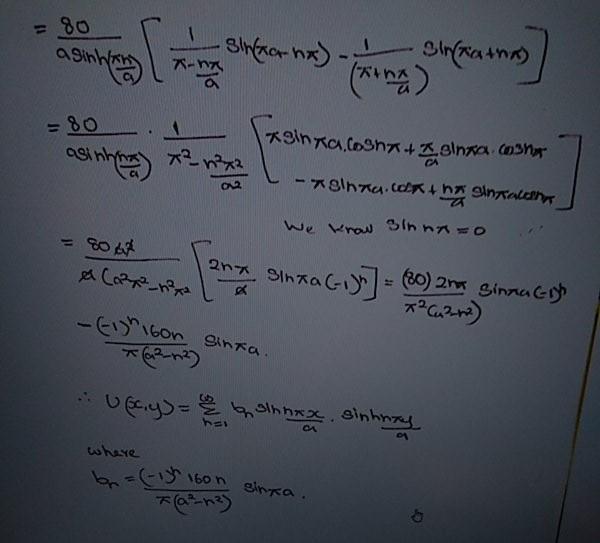 = 80 / a sinh(πn/a) [ 1 / π - nπ/a sin(πa - nπ) - 1 / (π + nπ/a) sin(πa + nπ) ]
= 80 / a sinh(nπ/a) · 1 / π² - n²π²/a² [ π sinπa. cosnπ + π/a sinπa. cosnπ
- π sinπa. cosπ + nπ/a sinπa cosnπ ]
We know sin nπ = 0
= 80 a² / a (a²π² - n²π² [ 2nπ/a sinπa (-1)ⁿ ] = (80) 2nπ / π² (a² - n²) sinπa (-1)ⁿ
- (-1)ⁿ 160n / π(a² - n²) sinπa.
∴ U(x,y) = ∞ Σ n=1 bn sin nπx/a . sinh nπy/a
where
bn = (-1)ⁿ 160n / π(a² - n²) sinπa.